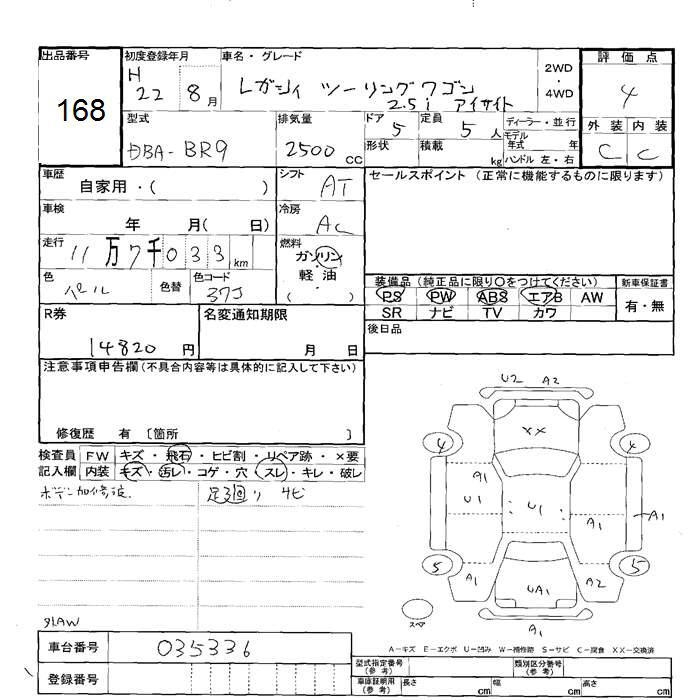 出品番号 初度登録年月 車名・グレード 2WD・4WD 評価点
168
H 22 8月 レガシィ ツーリングワゴン 4
2.5i アイサイト
型式 排気量 ドア 定員 ディーラー・並行 外装 内装
DBA-BR9 2500cc 5 5人 モデル年式 年 C C
形状 積載 kg ハンドル 左・右
車歴 シフト セールスポイント (正常に機能するものに限ります)
自家用・( ) AT
車検 冷房
年 月( 日) AC
走行 燃料
11万7千033km ガソリン
軽油
( )
色 色替 色コード
パール 37J
装備品 (純正品に限り○をつけてください) 新車保証書
PS PW ABS エアB AW 有・無
SR ナビ TV カワ
R券 名変通知期限 後日品
14820円 月 日
注意事項申告欄(不具合内容等は具体的に記入して下さい)
修復歴 有 〔箇所 〕
検査員 FW キズ・飛石・ヒビ割・リペア跡・×要
記入欄 内装 キズ・汚レ・コゲ・穴・スレ・キレ・破レ
足廻り サビ
U2 A2
XX
4 4
A1
U1 U1
A1 A1
5 5
A1 UA1 A2
スペア
A1
A-キズ E-エクボ U-凹み W-補修跡 S-サビ C-腐食 XX-交換済
車台番号 035336
登録番号
型式指定番号(参考) 類別区分番号(参考)
車庫証明用(参考) 長さ cm 幅 cm 高さ cm